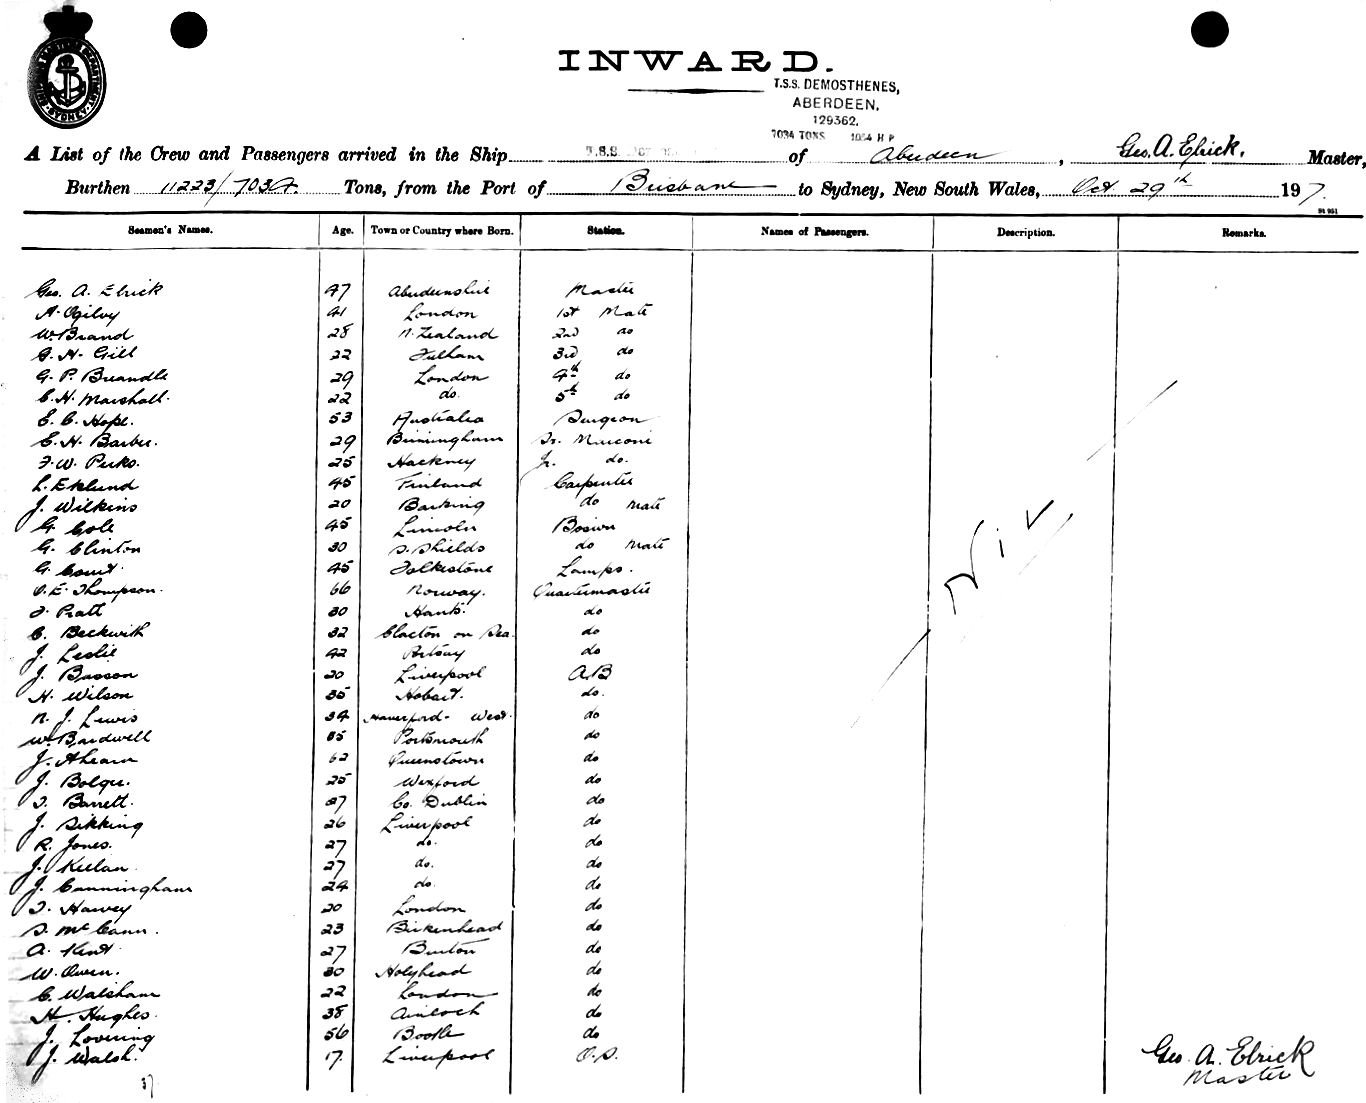 INWARD.
T.S.S. DEMOSTHENES,
ABERDEEN,
129362.
7034 TONS 1054 H P
A List of the Crew and Passengers arrived in the Ship T.S.S. of Aberdeen, Geo. A. Elrick, Master,
Burthen 11223/7034 Tons, from the Port of Brisbane to Sydney, New South Wales, Oct 29th 1917.
St 951
Seamen's Names. Age. Town or Country where Born. Station. Names of Passengers. Description. Remarks.
Geo. A. Elrick 47 Aberdeenshire Master
A. Ogilvy 41 London 1st Mate
W. Brand 28 N. Zealand 2nd do
G. H. Gill 22 Fulham 3rd do
G. P. Breandle 29 London 4th do
C. H. Marshall. 22 do. 5th do
E. C. Hope. 53 Australia Surgeon
C. H. Barber. 29 Birmingham Sr. Marconi
F. W. Perks. 25 Hackney Jr. do.
L. Eklund 45 Finland Carpenter
J. Wilkins 20 Barking do Mate
G. Cole 45 Lincoln Bosun
G. Clinton 30 S. Shields do Mate
G. Court. 45 Folkestone Lamps.
O. E. Thompson. 66 Norway. Quartermaster
F. Pratt 30 Hants. do
C. Beckwith 32 Clacton on Sea do
J. Leslie 42 do
J. Basson 20 Liverpool A.B
H. Wilson 35 Hobart. do.
N. J. Lewis 34 Haverford-West. do
W. Bardwell 35 Portsmouth do
J. Ahearn 62 Queenstown do
J. Bolger. 25 Wexford do
T. Barrett. 27 Co. Dublin do
J. Sikking 26 Liverpool do
R. Jones. 27 do. do
J. Keelan. 27 do. do
J. Cunningham 24 do. do
T. Harvey 20 London do
S. McCann. 23 Birkenhead do
A. Kent. 27 Burton do
W. Owen. 30 Holyhead do
C. Walsham 22 London do
H. Hughes. 38 do
J. Lovering 56 Bootle do
J. Walsh. 17. Liverpool O.S.
Nil
37
Geo. A. Elrick
Master